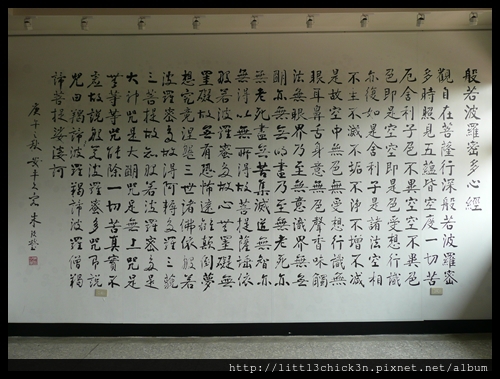 般若波羅密多心經
觀自在菩薩行深般若波羅密
多時照見五蘊皆空度一切苦
厄舍利子色不異空空不異色
色即是空空即是色受想行識
亦復如是舍利子是諸法空相
不生不滅不垢不淨不增不減
是故空中無色無受想行識無
眼耳鼻舌身意無色聲香味觸
法無眼界乃至無意識界無無
明亦無無明盡乃至無老死亦
無老死盡無苦集滅道無智亦
無得以無所得故菩提薩埵依
般若波羅密多故心無罣礙無
罣礙故無有恐怖遠離顛倒夢
想究竟涅槃三世諸佛依般若
波羅密多故得阿耨多羅三藐
三菩提故知般若波羅密多是
大神咒是大明咒是無上咒是
無等等咒能除一切苦真實不
虛故說般若波羅密多咒即說
咒曰揭諦揭諦波羅揭諦波羅僧揭
諦菩提娑婆訶
庚午之秋 安平 朱玖瑩
http://littl3chick3n.pixnet.net/album